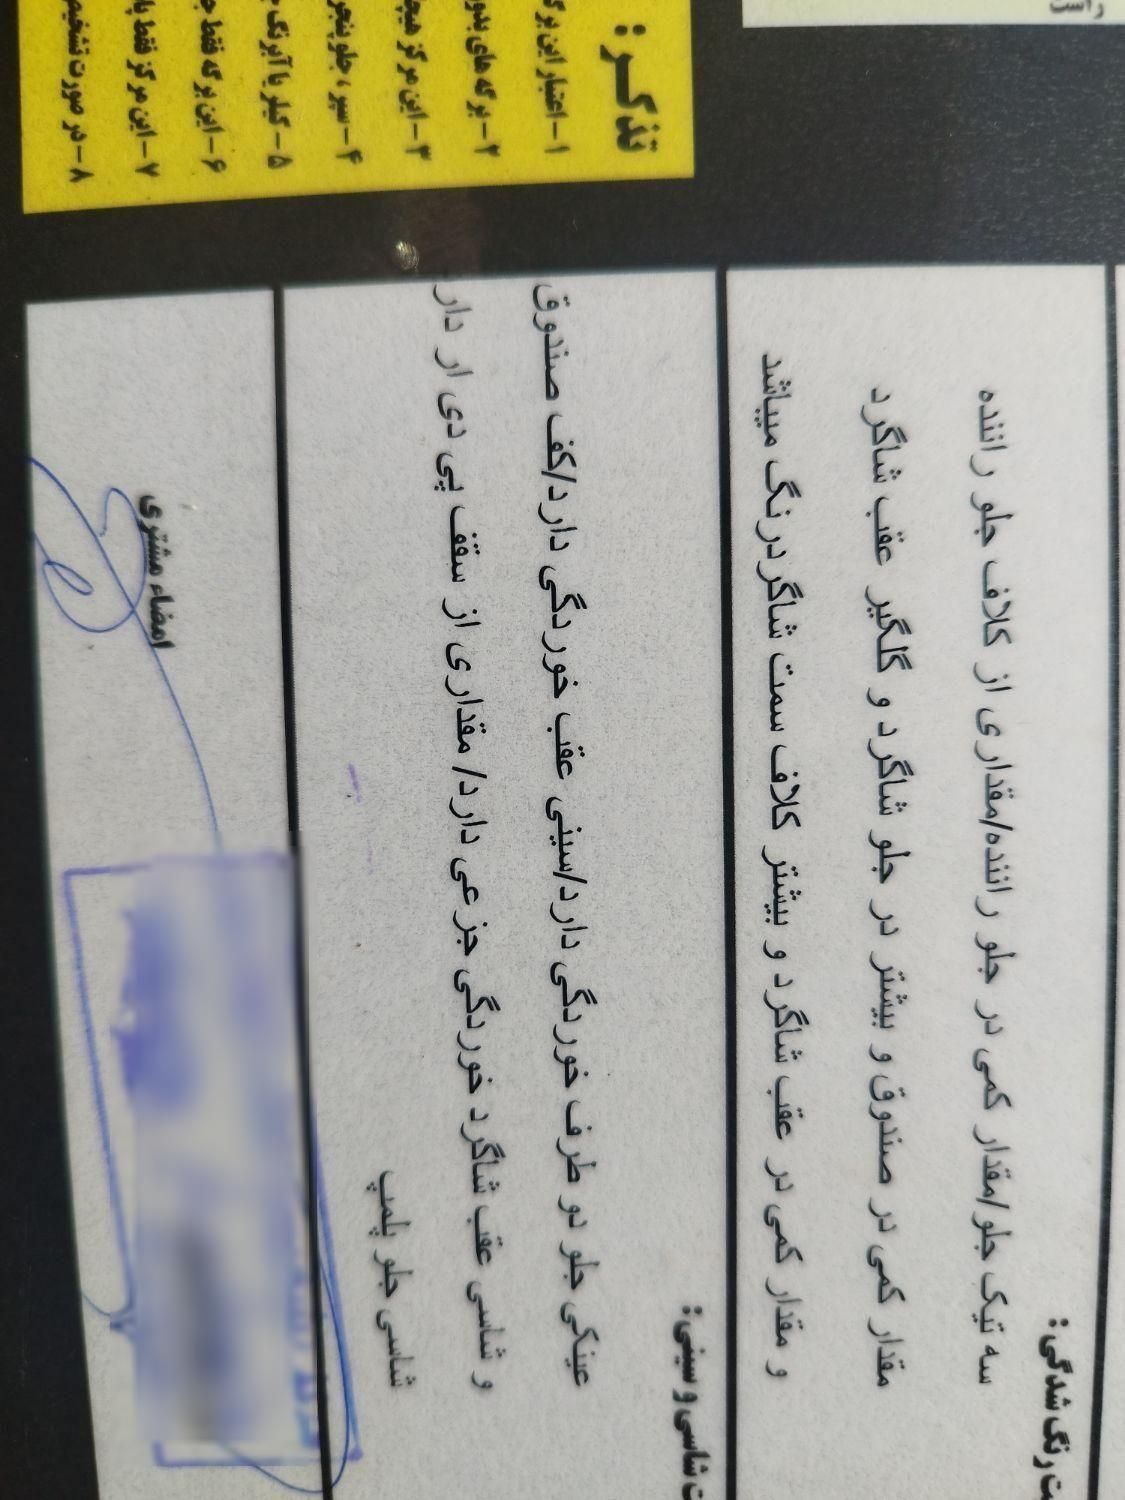 راست
ت رنگ شدگی :
سه تیک جلو/مقدار کمی در جلو راننده/مقداری از کلاف جلو راننده
مقدار کمی در صندوق و بیشتر در جلو شاگرد و گلگیر عقب شاگرد
و مقدار کمی در عقب شاگرد و بیشتر کلاف سمت شاگردرنگ میباشد
ت شاسی و سینی :
عینکی جلو دو طرف خوردگی دارد/سینی عقب خوردگی دارد/کف صندوق
و شاسی عقب شاگرد خوردگی جزعی دارد/ مقداری از سقف پی دی ار دار
شاسی جلو پلمپ
امضاء مشتری
تذکر :
۱ - اعتبار این برگ
۲ - برگه های بدو
۳ - این مرکز هیچ
۴ - سپر ، جلو پنجر
۵ - گیلر یا آبرنگ
۶ - این برگه فقط
۷ - این مرکز فقط
۸ - در صورت تشخیص